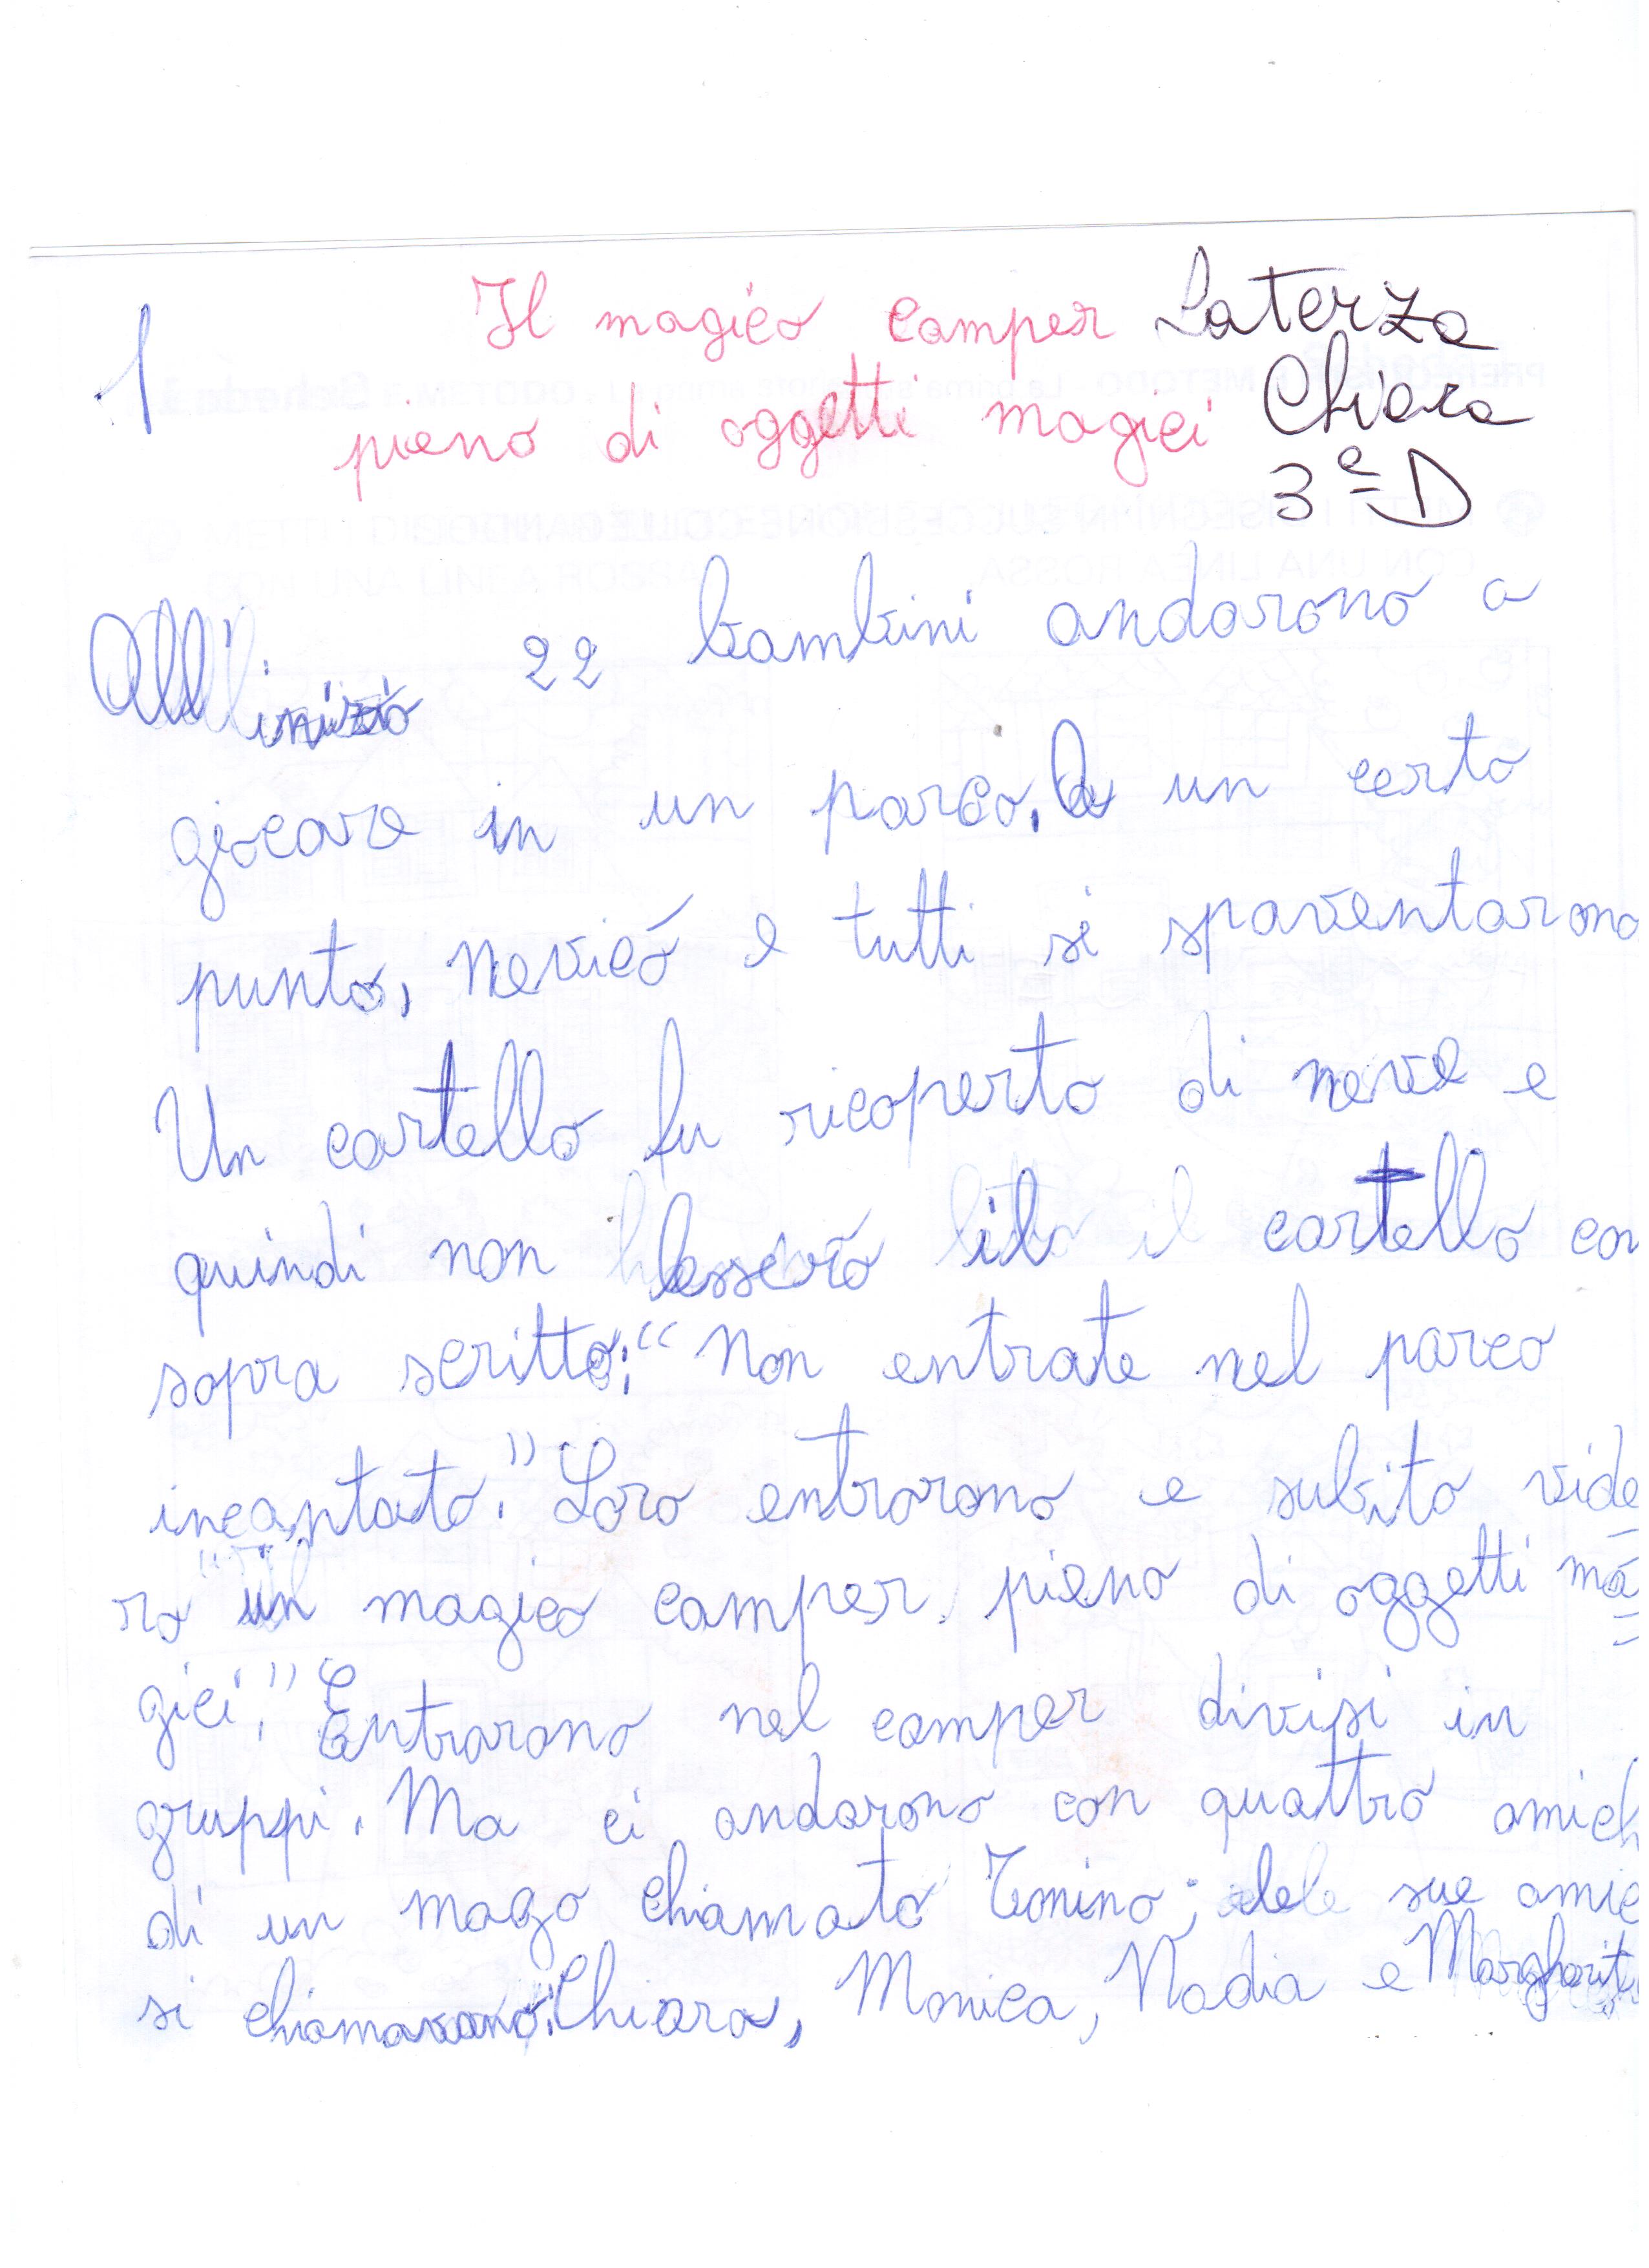 1
Il magico camper
pieno di oggetti magici
Laterza
Chiara
3ª D
All'inizio 22 bambini andarono a
giocare in un parco. A un certo
punto, nevicó e tutti si spaventarono
Un cartello fu ricoperto di neve e
quindi non lessero il cartello con
sopra scritto: "Non entrate nel parco
incantato." Loro entrarono e subito vide
ro "un magico camper pieno di oggetti ma=
gici." Entrarono nel camper divisi in
gruppi. Ma ci andarono con quattro amich
di un mago chiamato Tonino; le sue amic
si chiamavano: Chiara, Monica, Nadia e Margherit